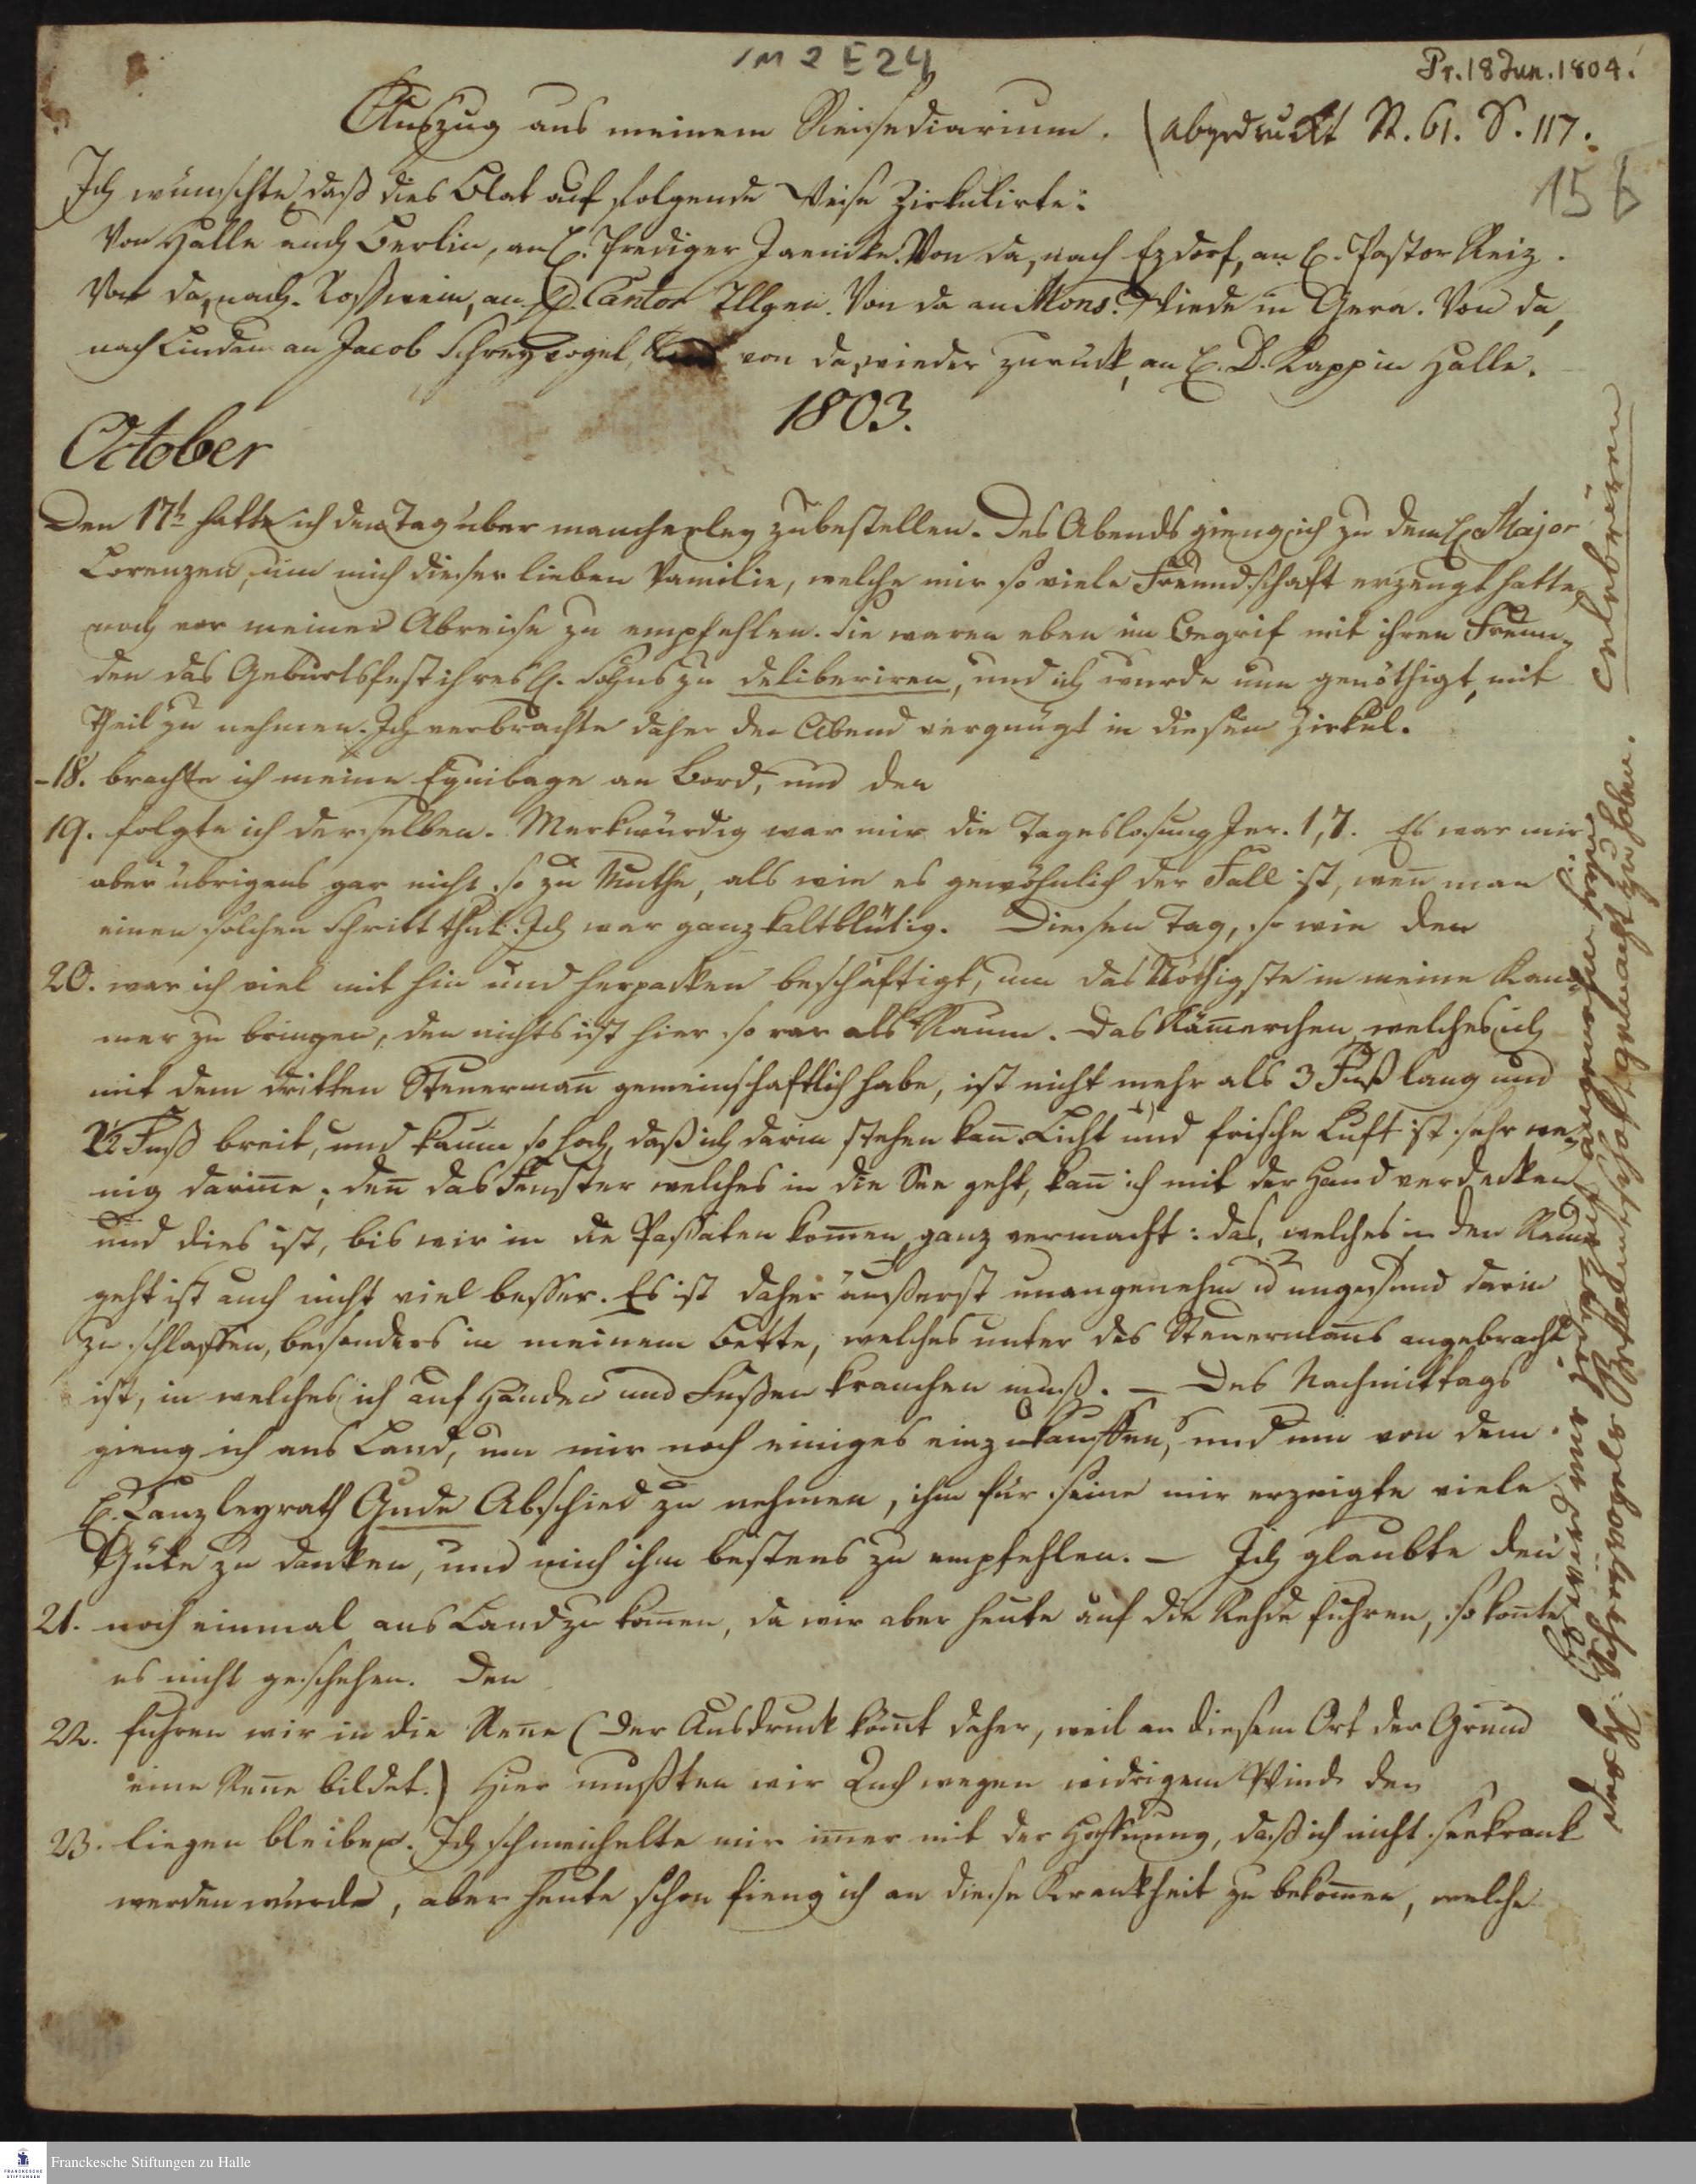 1M 2 E 24
Pr. 18 Jun. 1804.
Auszug aus meinem Reisediarium. (abgedruckt St. 61. S. 117.
15 b
Ich wünschte, daß dies Blat auf folgende Weise Zirkulirte:
Von Halle nach Berlin, an H. Prediger Jaenicke. Von da, nach Ezdorf, an H. Pastor Reiz.
Von da, nach Roßwein, an H. Cantor Illgen. Von da an Mons. Wiede in Gera. Von da,
nach Lindau an Jacob Schreyvogel, von da, wieder zurück, an H. D. Knapp in Halle.
1803.
October
Den 17t hatte ich den Tag über mancherley zubestellen. Des Abends gieng ich zu dem H. Major
Lorenzen, um mich dieser lieben Familie, welche mir so viele Freundschaft erzeugt hatte,
noch vor meiner Abreise zu empfehlen. Sie waren eben im Begrif mit ihren Freun-
den das Geburtsfest ihres H. Sohns zu deliberiren, und ich wurde nun genöthigt, mit
Theil zu nehmen. Ich verbrachte daher den Abend vergnügt in diesem Zirkel.
-18. brachte ich meine Equibage an Bord, und den
19. folgte ich derselben. Merkwürdig war mir die Tageslosung Jer. 1,7. Es war mir
aber übrigens gar nicht so zu Muthe, als wie es gewöhnlich der Fall ist, weñ man
einen solchen Schritt thut: Ich war ganz kaltblütig. Diesen Tag, so wie den
20. war ich viel mit hin und herpacken beschäftigt, um das Nöthigste in meine Kam-
mer zu bringen, den nichts ist hier so rar als Raum. Das Kämerchen, welches ich
mit dem dritten Steuermañ gemeinschaftlich habe, ist nicht mehr als 3 Fuß lang und
2½ Fuß breit, und kaum so hoch, daß ich darin stehen kañ. Licht und frische Luft ist sehr we-
nig dariñe; deñ das Fenster welches in die See geht, kañ ich mit der Hand verdecken,
und dies ist, bis wir in die Passaten komen, ganz vermacht: das, welches in den Raum
geht ist auch nicht viel besser. Es ist daher äußerst unangenehm u ungesund darin
zu schlaffen, besonders in meinem Bette, welches unter des Steuermañs angebracht
ist, in welches ich auf Händen und Fußen krauchen muß. — Des Nachmittags
gieng ich ans Land, um mir noch einiges einzukauffen, und um von dem
H. Canzleyrath Gude Abschied zu nehmen, ihm für seine mir erzeigte viele
Güte zu danken, und mich ihm bestens zu empfehlen. — Ich glaubte den
21. noch einmal ans Land zu komen, da wir aber heute auf die Rehde fuhren, so koñte
es nicht geschehen. Den
22. fuhren wir in die Reñe (der Ausdruck kömt daher, weil an diesem Ort der Grund
eine Reñe bildet.) Hier mußten wir auch wegen widrigem Winde den
23. liegen bleiben. Ich schmeichelte mir imer mit der Hoffnung, daß ich nicht seekrank
werden würde, aber heute schon fieng ich an diese Krankheit zu bekomen, welche
celebriren
des H. Schreÿvogels Bekantschaft gemacht zu haben.
Franckesche Stiftungen zu Halle
FRANCKESCHE
STIFTUNGEN